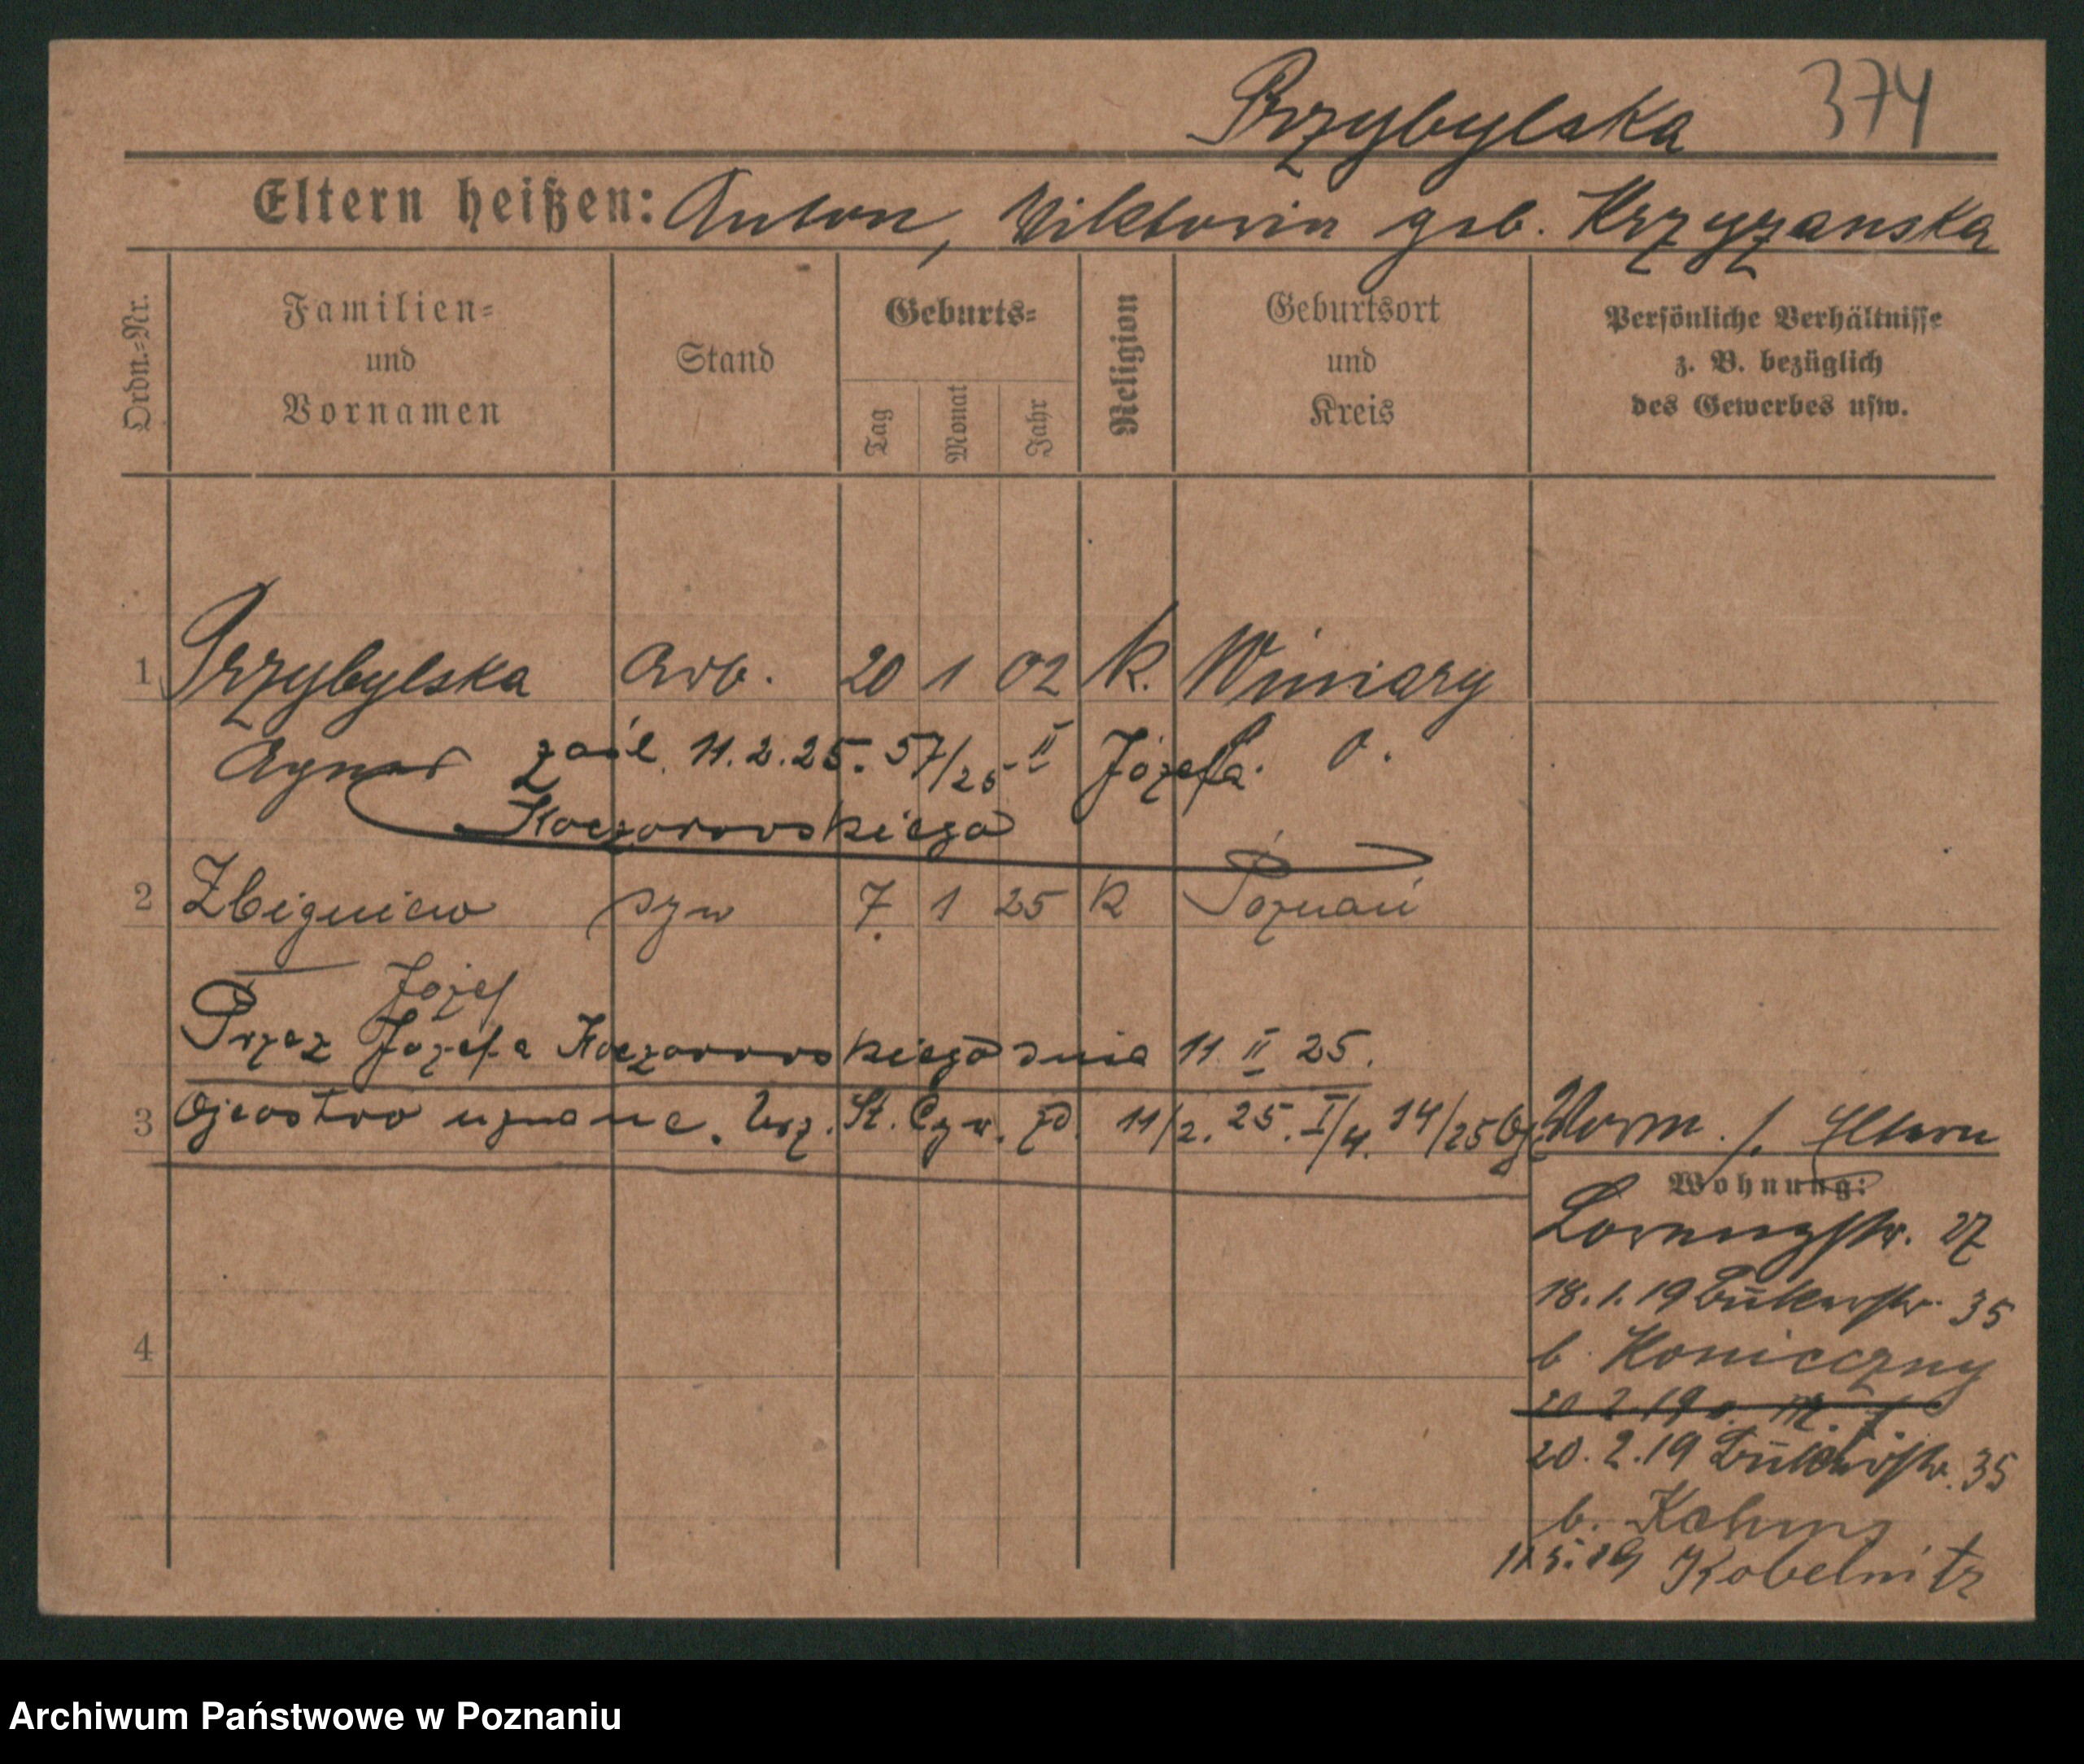 Przybylska 374
Eltern heißen: Anton, Wiktoria geb. Krzyzanska
Ordn.-Nr.
Familien-
und
Vornamen
Stand
Geburts-
Tag
Monat
Jahr
Religion
Geburtsort
und
Kreis
Persönliche Verhältnisse
z. B. bezüglich
des Gewerbes usw.
1 Przybylska Arb. 20 1 02 k. Winiary
Agnes zaśl. 11.2.25. 57/25 II Józefa
Koczorowskiego
2 Zbigniew syn 7 1 25 k Poznań
Józef
Przez Józefa Koczorowskiego dnia 11. II 25.
3 Ojcostwo uznane. Urz. St. Cyw. 11/2. 25. I/4. 14/25
Vorm. s. Eltern
Wohnung:
27
18.1.19 35
b. Konieczny
20.2.19
20.2.19 35
b.
Kobelnitz
4
Archiwum Państwowe w Poznaniu